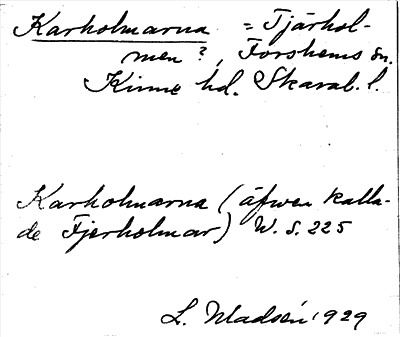 Karholmarna = Tjärhol-
men?, Forshems sn.
Kinne hd. Skarab. l.
Karholmarna (äfven kalla-
de Fjerholmar) W. S. 225
L. Wladsén 1929